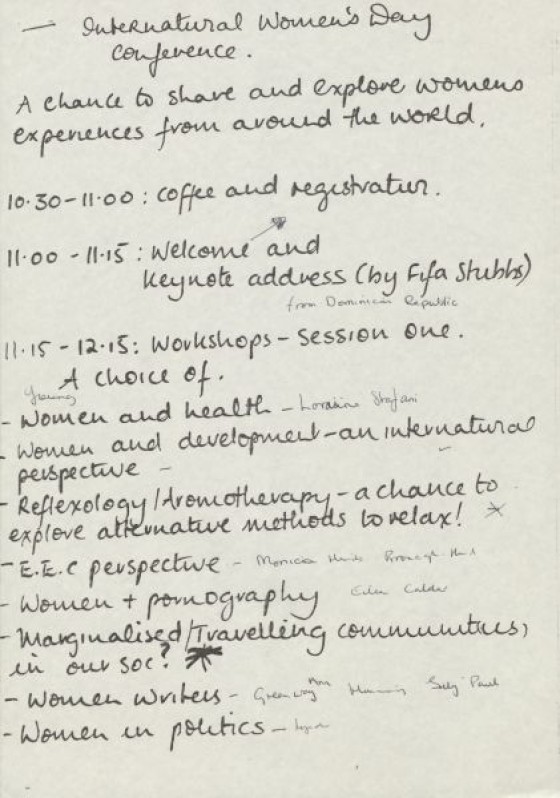 — International Women's Day
conference.
A chance to share and explore womens
experiences from around the world.
10.30-11.00: coffee and registration.
11.00 - 11.15: Welcome and
keynote address (by Fifa Stubbs)
from Dominican Republic
11.15 - 12.15: Workshops - session one.
A choice of.
Young
- Women and health - Lorraine
- Women and development - an international
perspective -
- Reflexology/Aromotherapy - a chance to
explore alternative methods to relax!
- E.E.C perspective - Monica
- Women + pornography
- Marginalised/Travelling communities,
in our soc?
- Women writers - Greenway
- Women in politics -